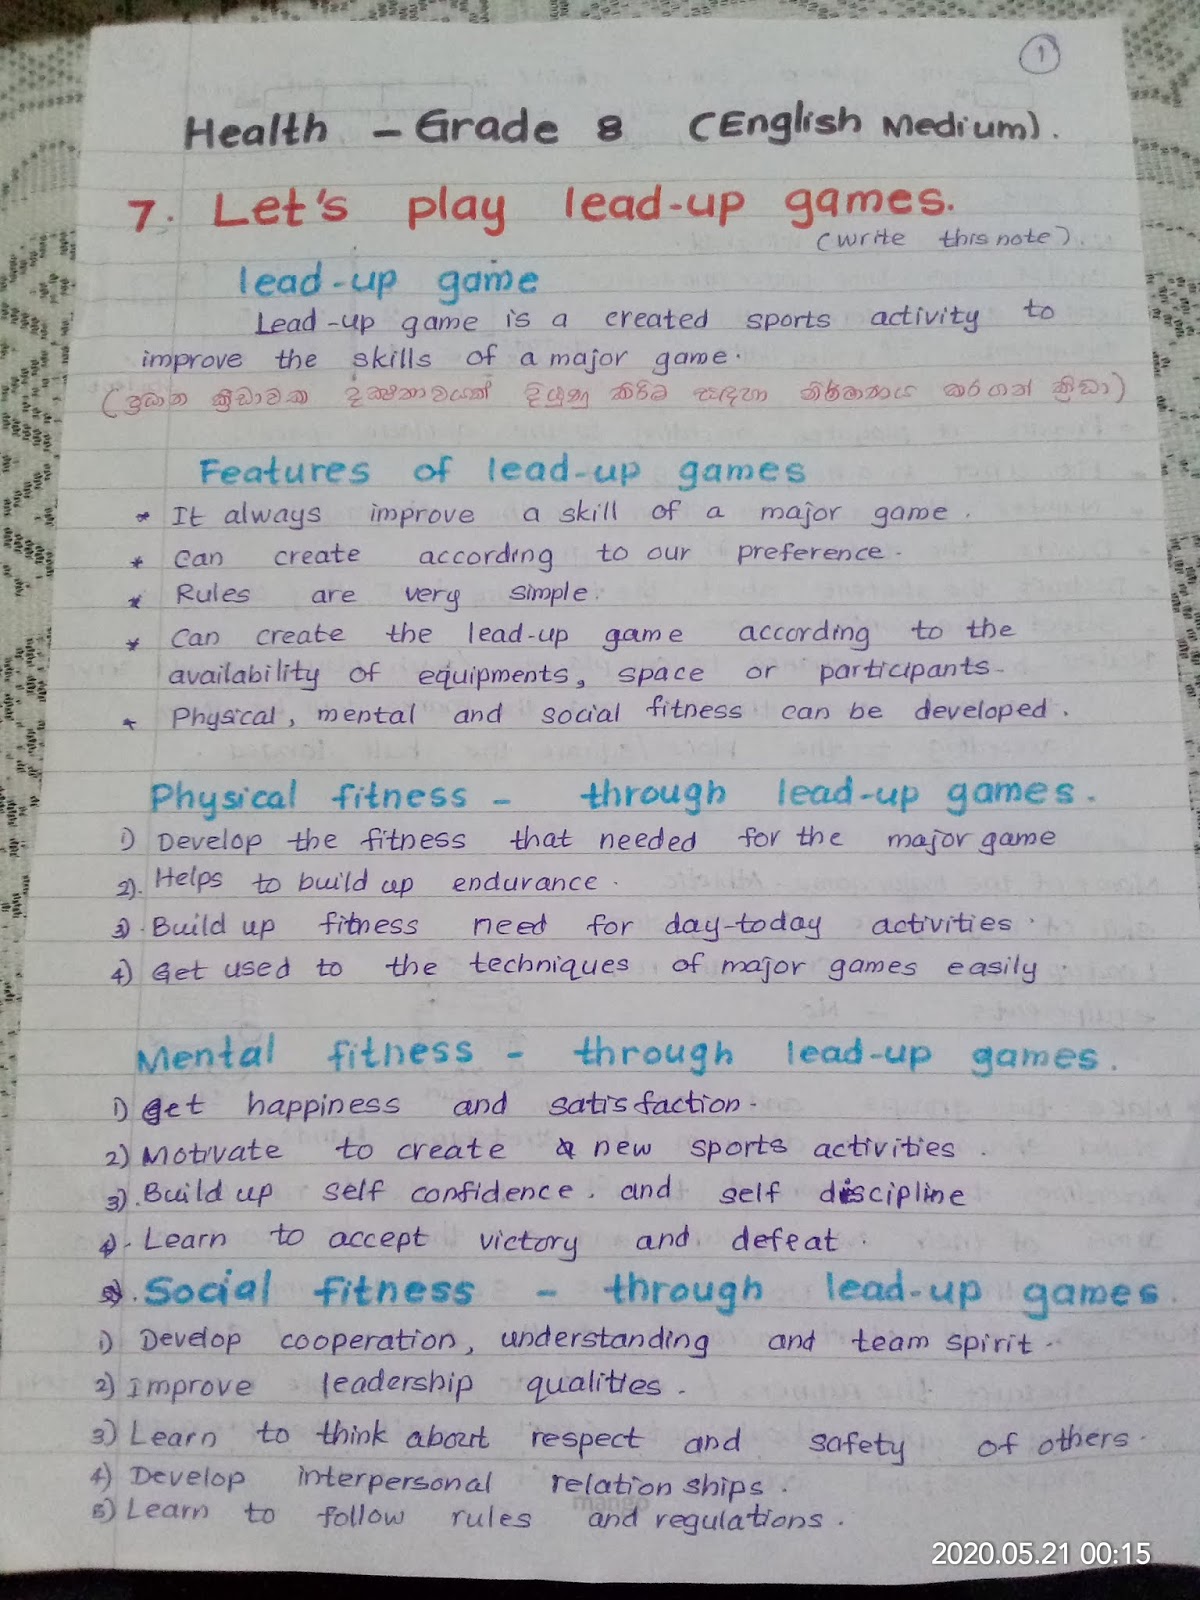 1
Health - Grade 8 (English Medium).
7. Let's play lead-up games.
(write this note).
lead-up game
Lead-up game is a created sports activity to
improve the skills of a major game.
(ප්‍රධාන ක්‍රීඩාවක දක්ෂතාවයක් දියුණු කිරීම සඳහා නිර්මාණය කරගත් ක්‍රීඩා)
Features of lead-up games
* It always improve a skill of a major game.
* Can create according to our preference.
* Rules are very simple.
* Can create the lead-up game according to the
availability of equipments, space or participants.
* Physical, mental and social fitness can be developed.
Physical fitness - through lead-up games.
1) Develop the fitness that needed for the major game
2). Helps to build up endurance.
3). Build up fitness need for day-today activities.
4) Get used to the techniques of major games easily.
Mental fitness - through lead-up games.
1) Get happiness and satisfaction.
2) Motivate to create new sports activities.
3). Build up self confidence. and self discipline
4). Learn to accept victory and defeat.
Social fitness - through lead-up games.
1) Develop cooperation, understanding and team spirit.
2) Improve leadership qualities.
3) Learn to think about respect and safety of others.
4) Develop interpersonal relation ships.
5) Learn to follow rules and regulations.
mango
2020.05.21 00:15